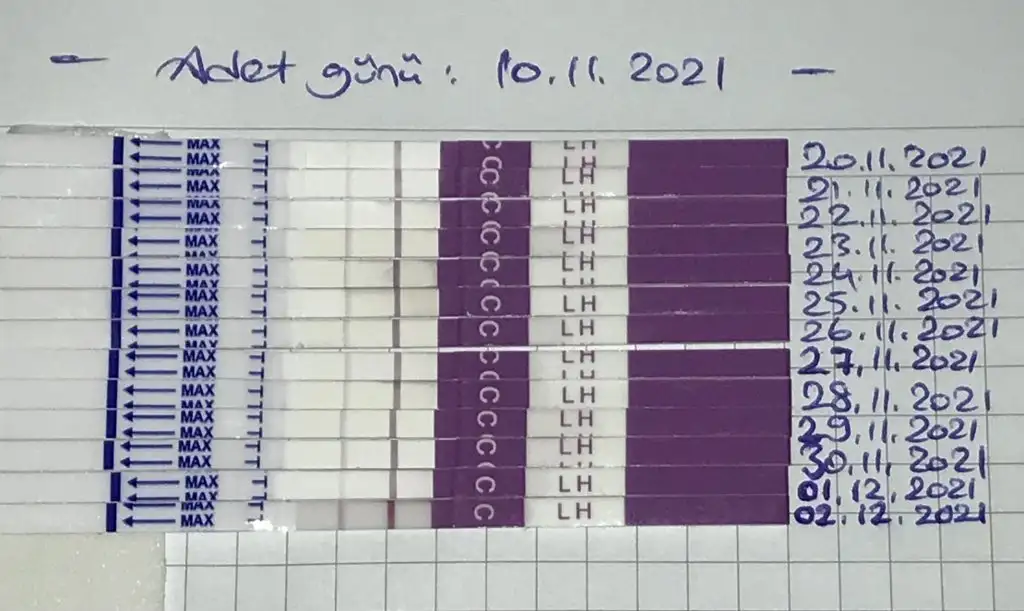 - Adet günü : 10.11.2021 -
MAX T C LH
MAX T C LH 20.11.2021
MAX T C LH 21.11.2021
MAX T C LH 22.11.2021
MAX T C LH 23.11.2021
MAX T C LH 24.11.2021
MAX T C LH 25.11.2021
MAX T C LH 26.11.2021
MAX T C LH 27.11.2021
MAX T C LH 28.11.2021
MAX T C LH 29.11.2021
MAX T C LH 30.11.2021
MAX T C LH 01.12.2021
MAX T C LH 02.12.2021